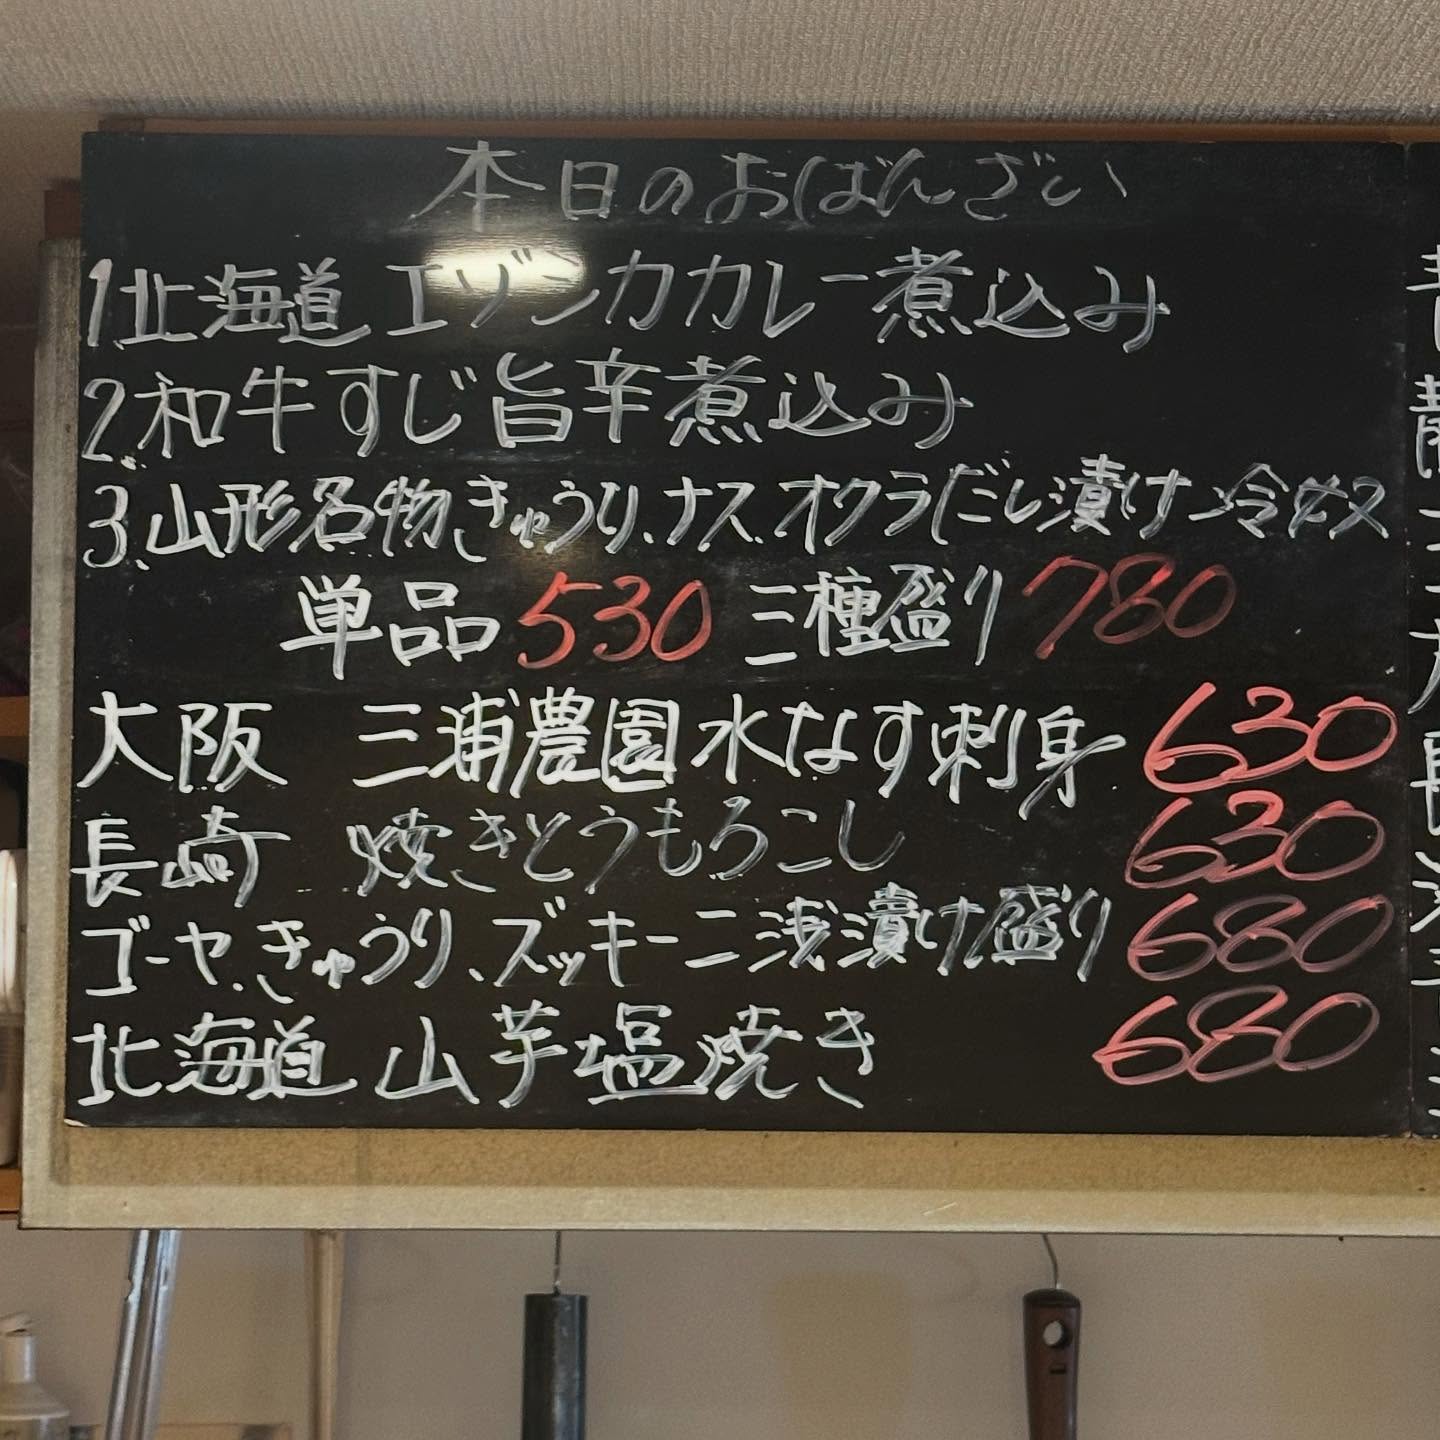 本日のおばんざい
1北海道 エゾシカカレー煮込み
2.和牛すじ旨辛煮込み
3.山形名物、きゅうり、ナス オクラだし漬け 冷奴
単品530 三種盛り780
大阪 三浦農園水なす刺身 630
長崎 焼きとうもろこし 630
ゴーヤ、きゅうり、ズッキーニ浅漬け盛り 680
北海道 山芋塩焼き 680